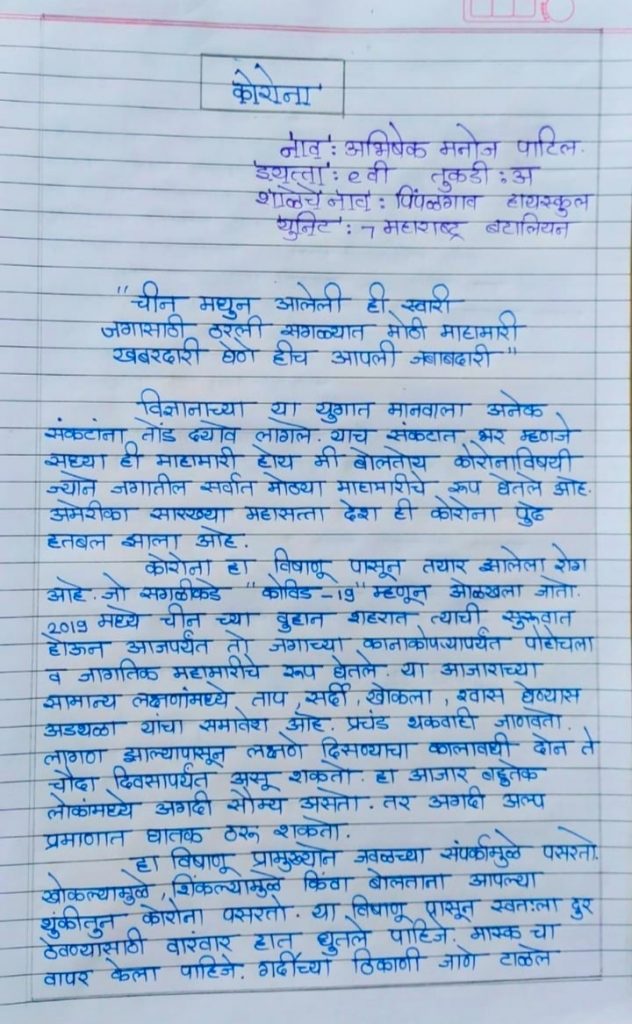 कोरोना
नाव : अभिषेक मनोज पाटिल.
इयत्ता : ९वी तुकडी : अ
शाळेचे नाव : पिंपळगाव हायस्कुल
युनिट : 7 महाराष्ट्र बटालियन
"चीन मधुन आलेली ही स्वारी
जगासाठी ठरली सगळ्यात मोठी माहामारी
खबरदारी घेणे हीच आपली जबाबदारी"
विज्ञानाच्या या युगात मानवाला अनेक
संकटांना तोंड दयावे लागले. याच संकटात भर म्हणजे
सध्या ही माहामारी होय मी बोलतोय कोरोनाविषयी
ज्याने जगातील सर्वात मोठ्या माहामारीचे रूप घेतले आहे.
अमेरीका सारख्या महासत्ता देश ही कोरोना पुढे
हतबल झाला आहे.
कोरोना हा विषाणू पासून तयार झालेला रोग
आहे. जो सगळीकडे "कोविड -19" म्हणून ओळखला जातो.
2019 मध्ये चीन च्या वुहान शहरात त्याची सुरूवात
होऊन आजपर्यंत तो जगाच्या कानाकोपऱ्यापर्यंत पोहोचला
व जागतिक महामारीचे रूप घेतले. या आजाराच्या
सामान्य लक्षणांमध्ये ताप, सर्दी, खोकला, श्वास घेण्यास
अडथळा यांचा समावेश आहे. प्रचंड थकवाही जाणवतो.
लागण झाल्यापासून लक्षणे दिसण्याचा कालावधी दोन ते
चौदा दिवसापर्यंत असू शकतो. हा आजार बहुतेक
लोकांमध्ये अगदी सौम्य असतो. तर अगदी अल्प
प्रमाणात घातक ठरू शकतो.
हा विषाणू प्रामुख्याने जवळच्या संपर्कामुळे पसरतो.
खोकल्यामुळे, शिंकल्यामुळे किंवा बोलताना आपल्या
थुंकीतुन कोरोना पसरतो. या विषाणू पासून स्वतःला दुर
ठेवण्यासाठी वारंवार हात धुतले पाहिजे. मास्क चा
वापर केला पाहिजे. गर्दीच्या ठिकाणी जाणे टाळले